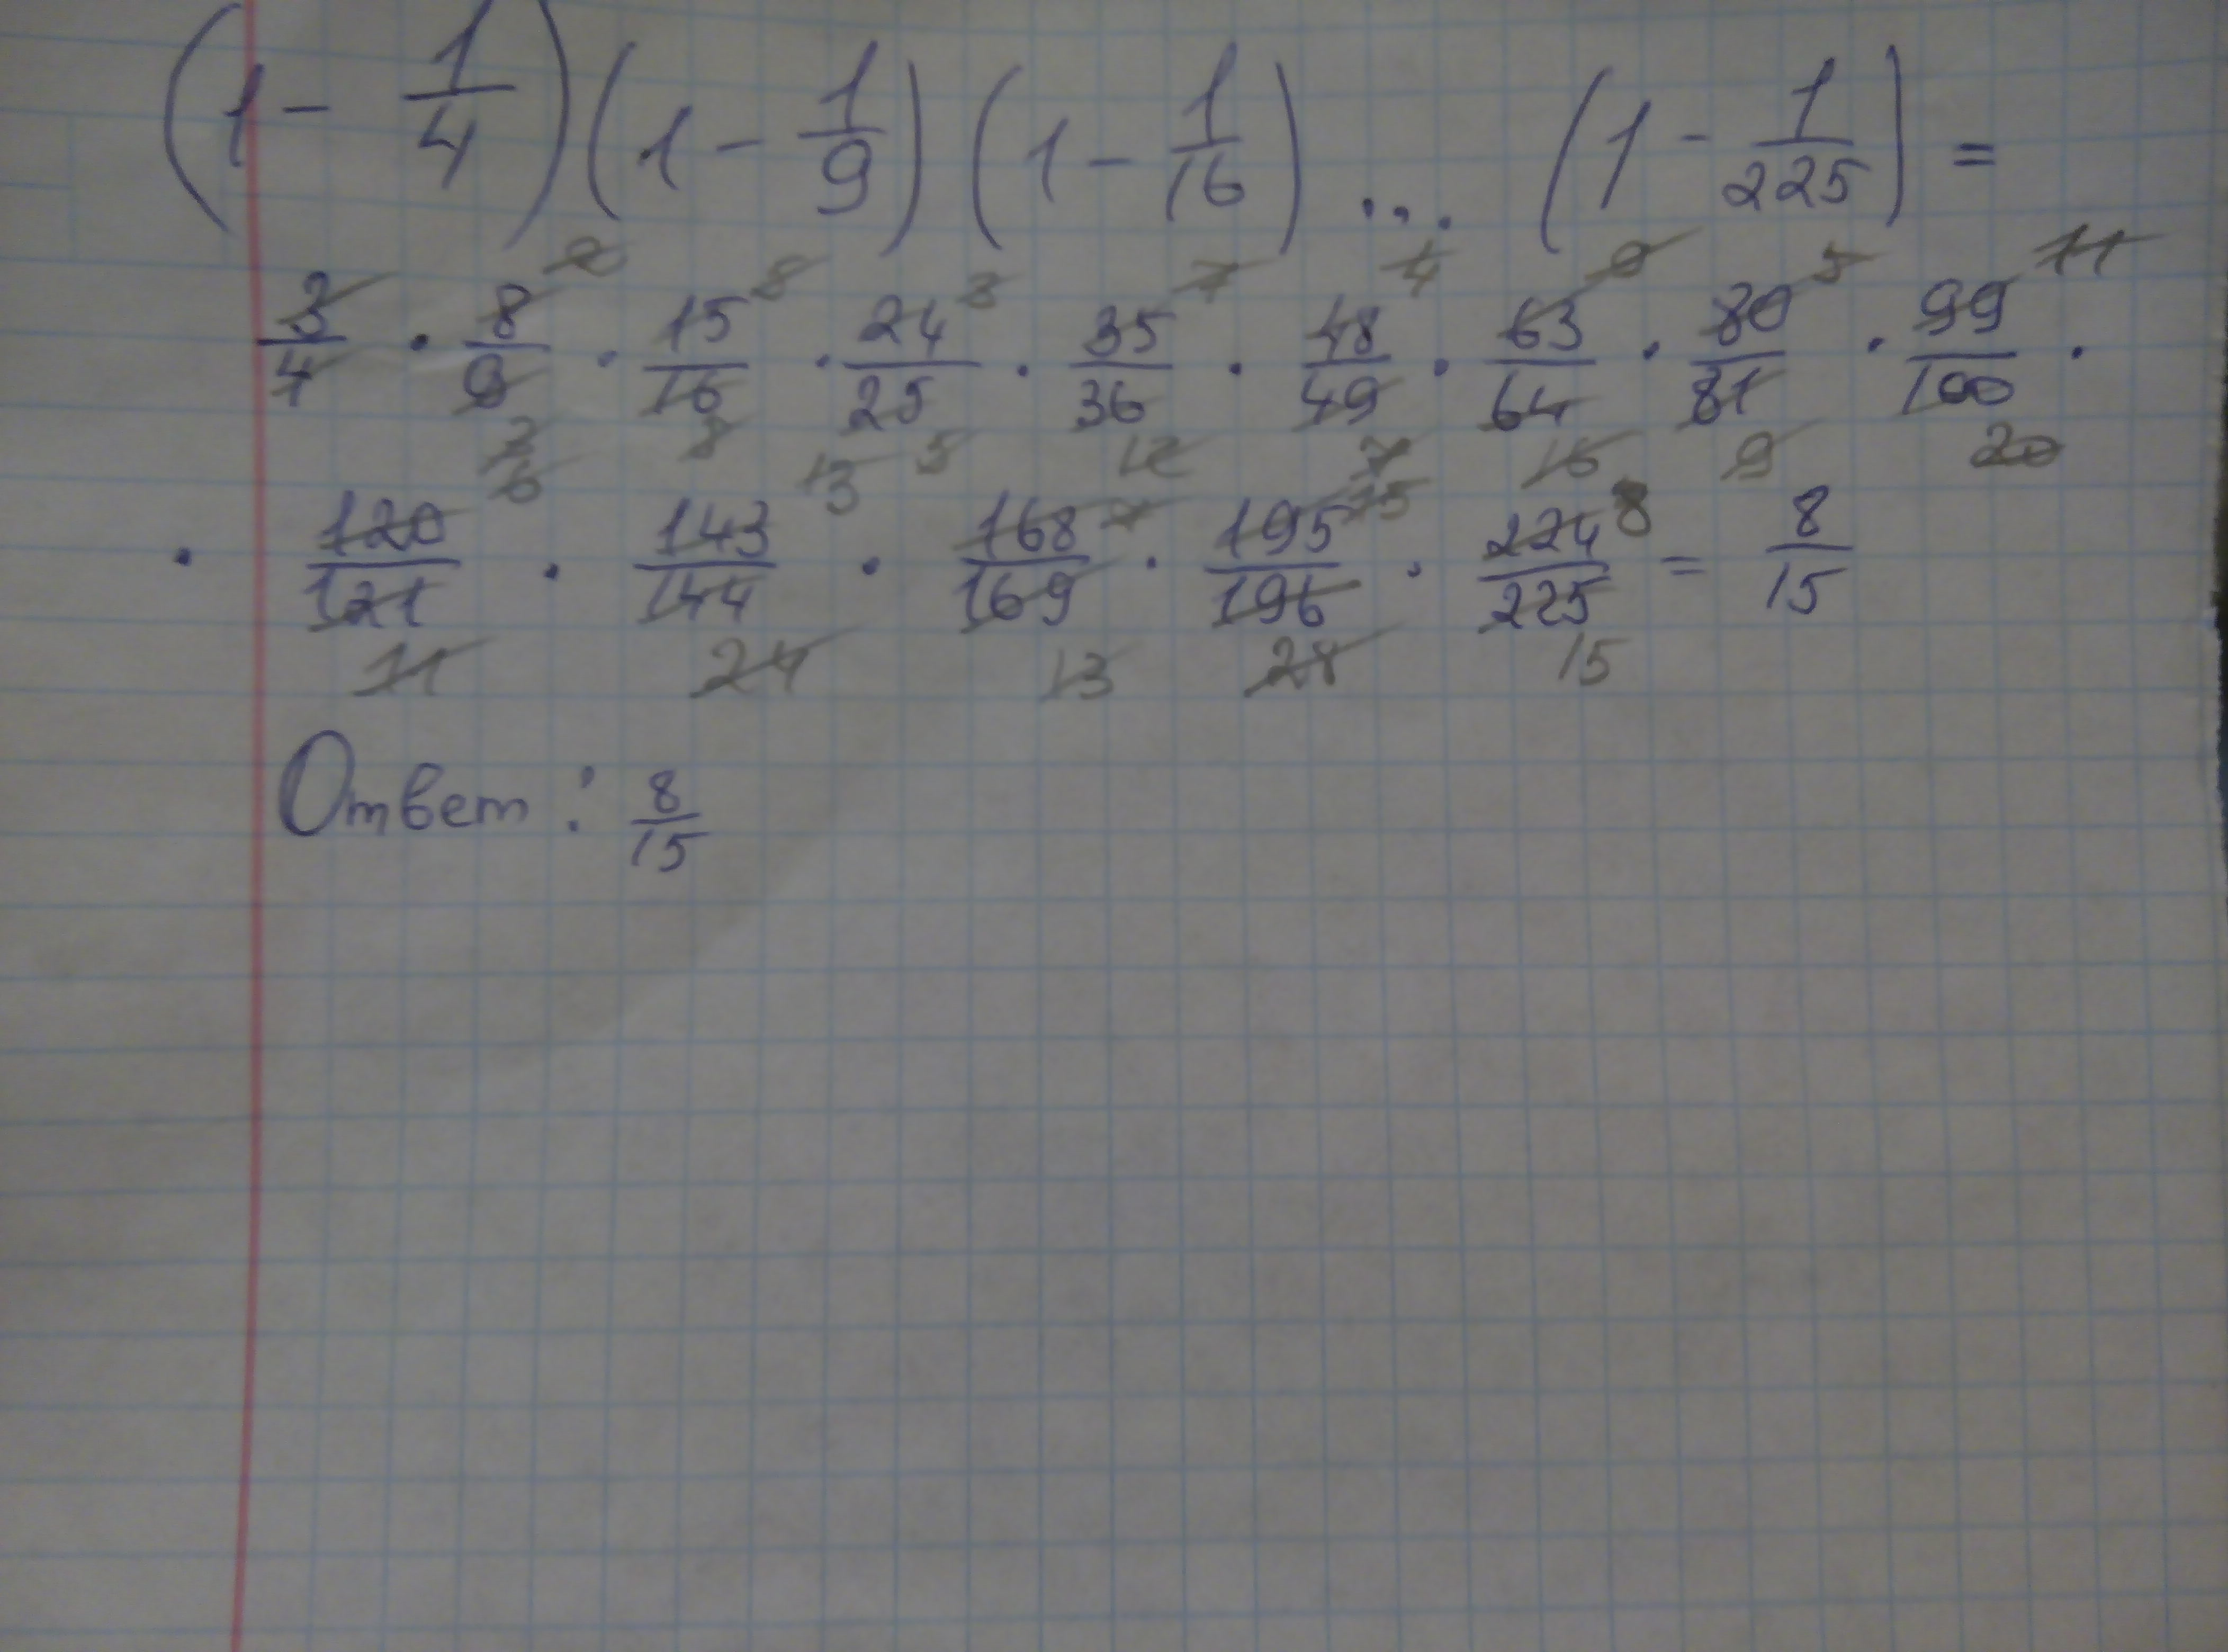 (1 - 1/4)(1 - 1/9)(1 - 1/16) ... (1 - 1/225) =
3/4 · 8/9 · 15/16 · 24/25 · 35/36 · 48/49 · 63/64 · 80/81 · 99/100 ·
· 120/121 · 143/144 · 168/169 · 195/196 · 224/225 = 8/15
11 24 13 28 15
Ответ: 8/15